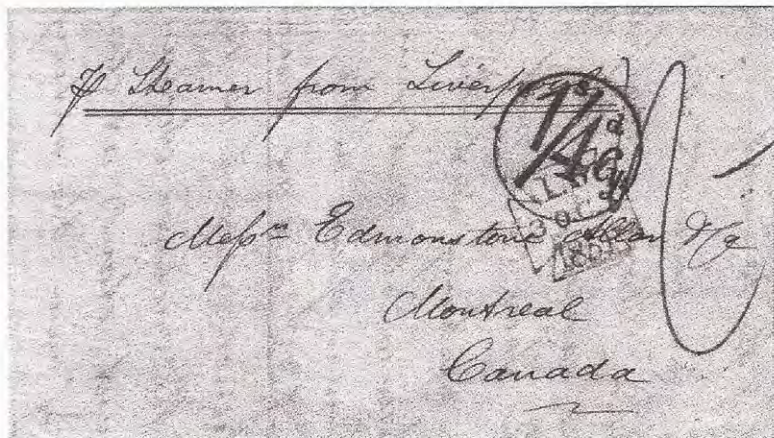 ℔ Steamer from Liverpool
1s/4d Cy
Messrs Edmonstone Allan & Co
Montreal
Canada